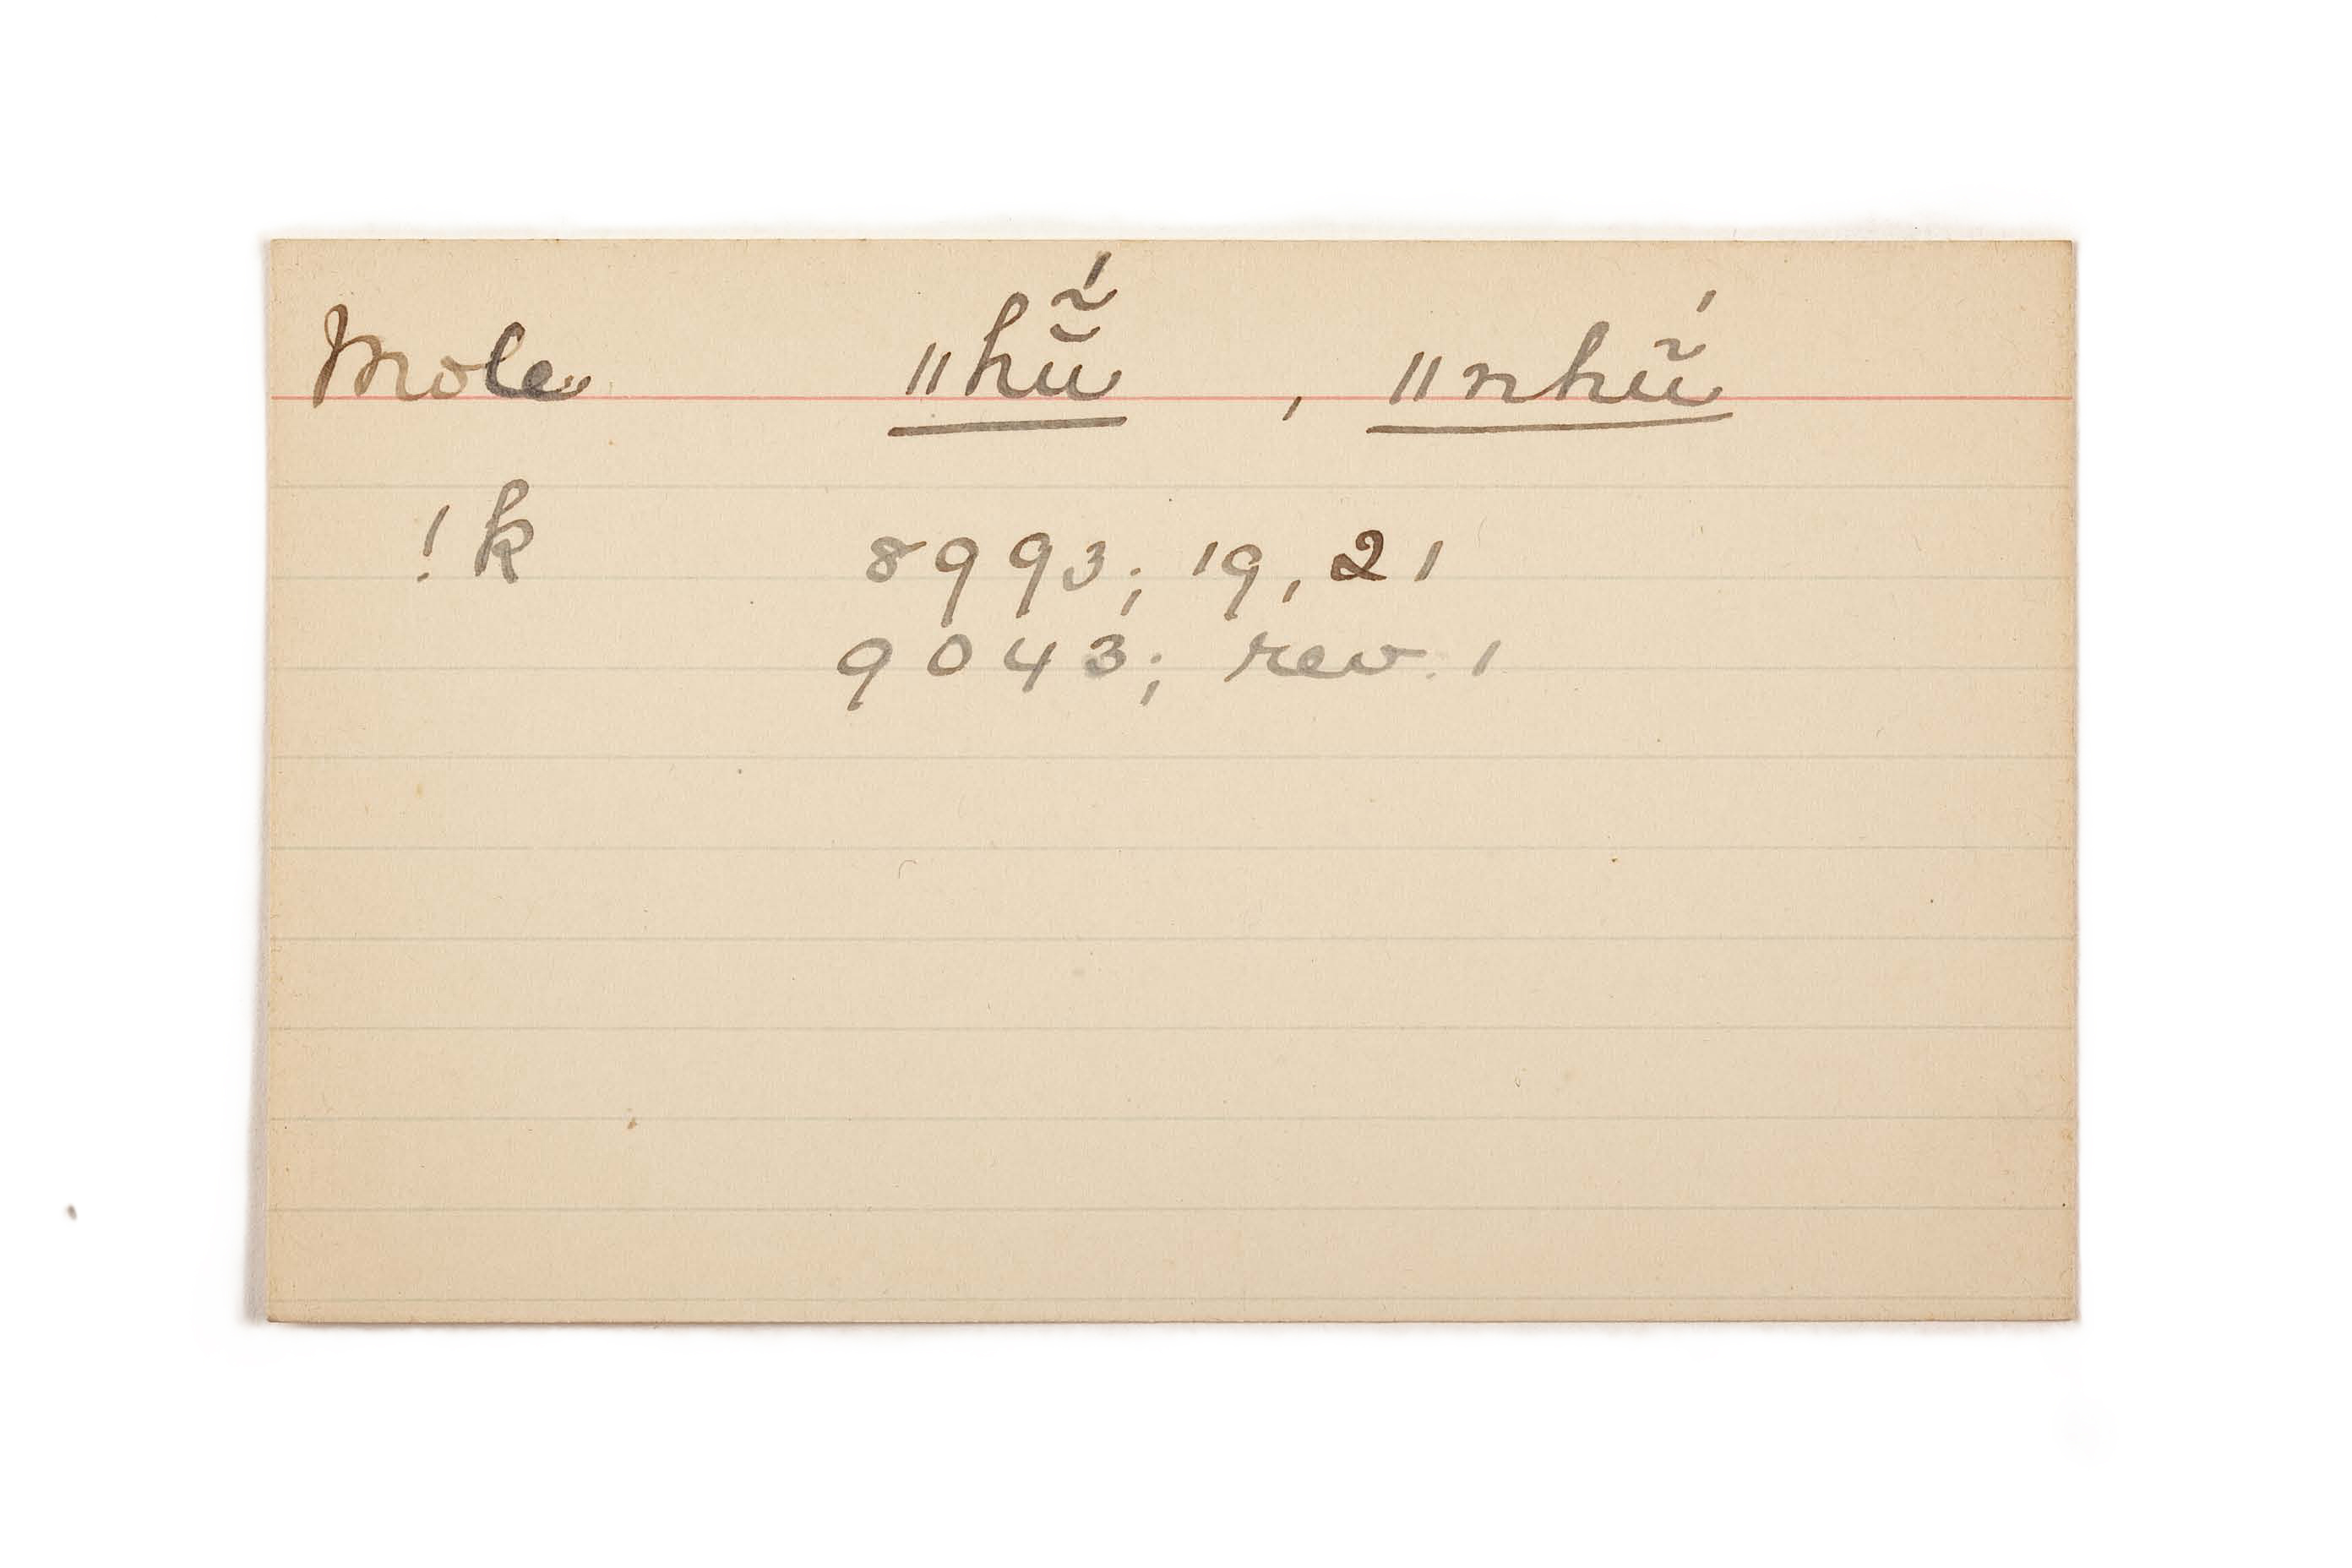 Mole ǁhŭ̃́ , ǁnhũ̆́
!k 8993; 19, 21
9043; rev. 1